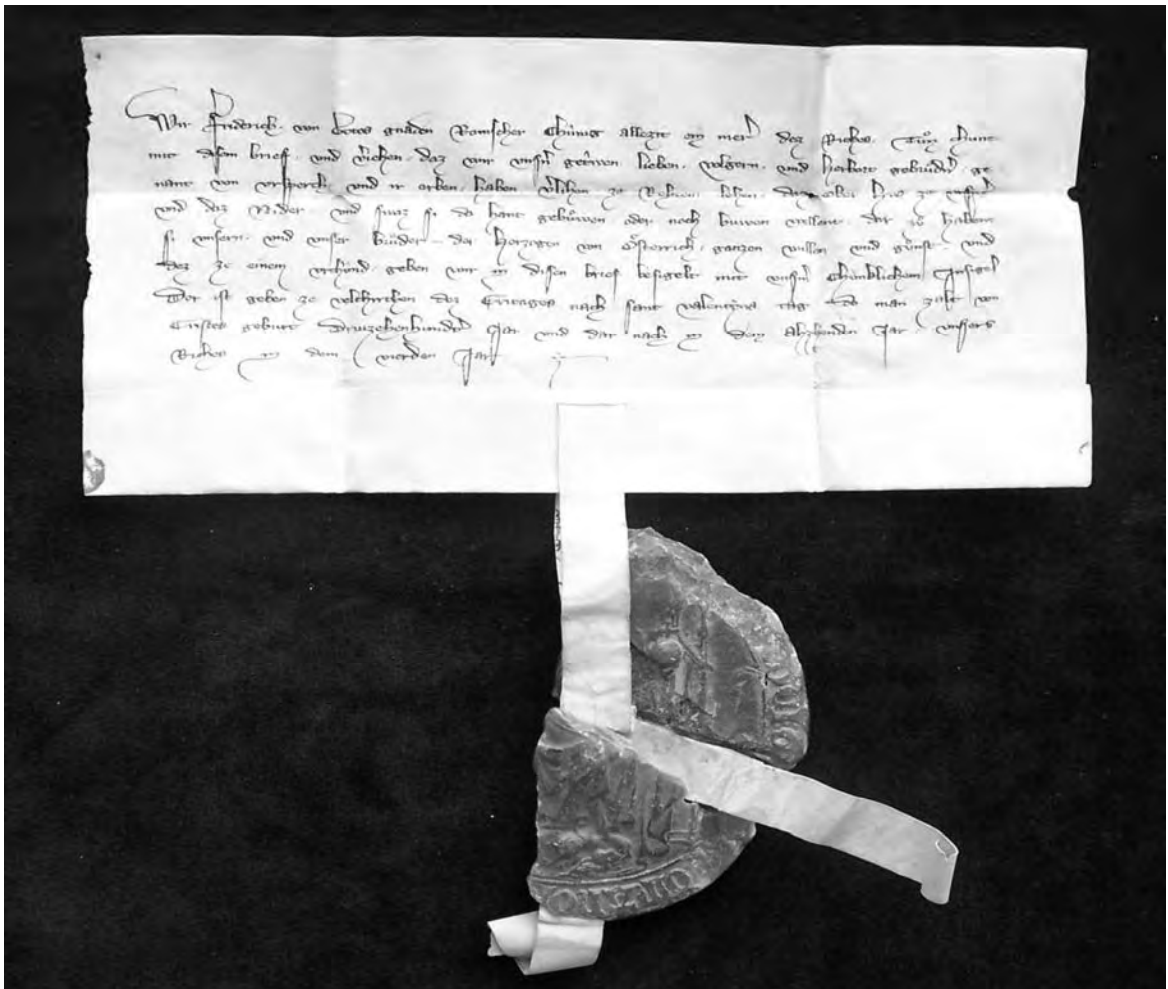 Wir Friderich von Gotes gnaden Romischer Chünig allezit ein merer dez Riches Tůn chunt
mit disem brief und veriehen daz wir unsern getrwen lieben Volgern und Herbort gebrůdern ge
nant von und ir erben haben verlihen ze Rehtem lehen daz ober ze unserm
und daz Nider und swaz si da hant gebůwen oder noch buwen wellent dar zů habent
si unsern und unser brůder der Herzogen von Ǒsterrich ganzen willen und gůnst und
dez ze einem urchůnd geben wir in disen brief besigelt mit unserm chůnblichem Insigel
Der ist geben ze veltchirchen dez Eritages nach sant valentins tag do man zalt von
Cristes geburt Driuzehenhundert Jar und dar nach in dem ahzehenden Jar unsers
Riches in dem vierden Jar